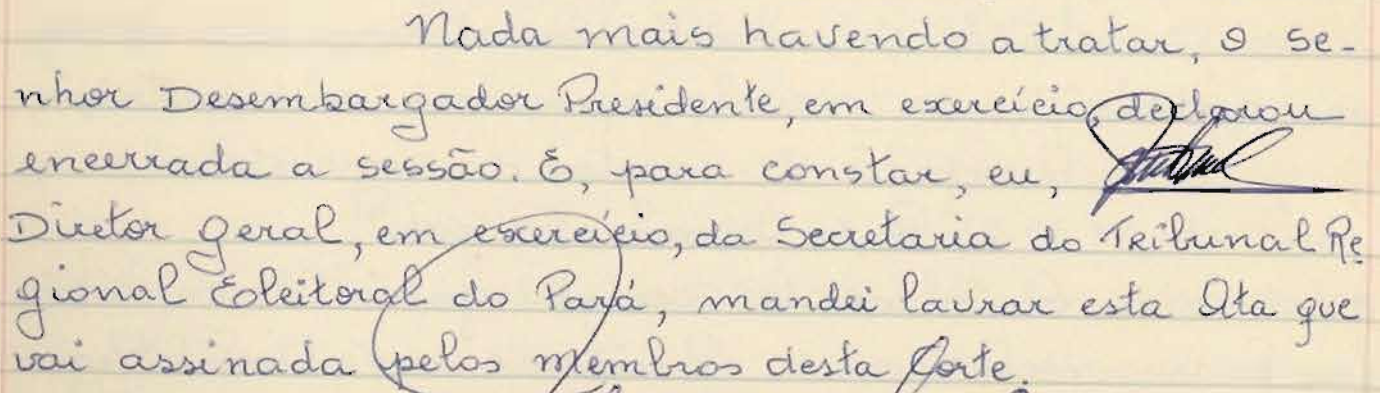 Nada mais havendo a tratar, o se-
nhor Desembargador Presidente, em exercício, declarou
encerrada a sessão. E, para constar, eu,
Diretor Geral, em exercício, da Secretaria do Tribunal Re
gional Eleitoral do Pará, mandei lavrar esta Ata que
vai assinada pelos Membros desta Corte.